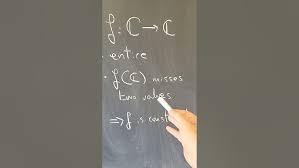 f: ℂ → ℂ
· entire
· f(ℂ) misses
two values
⇒ f is const